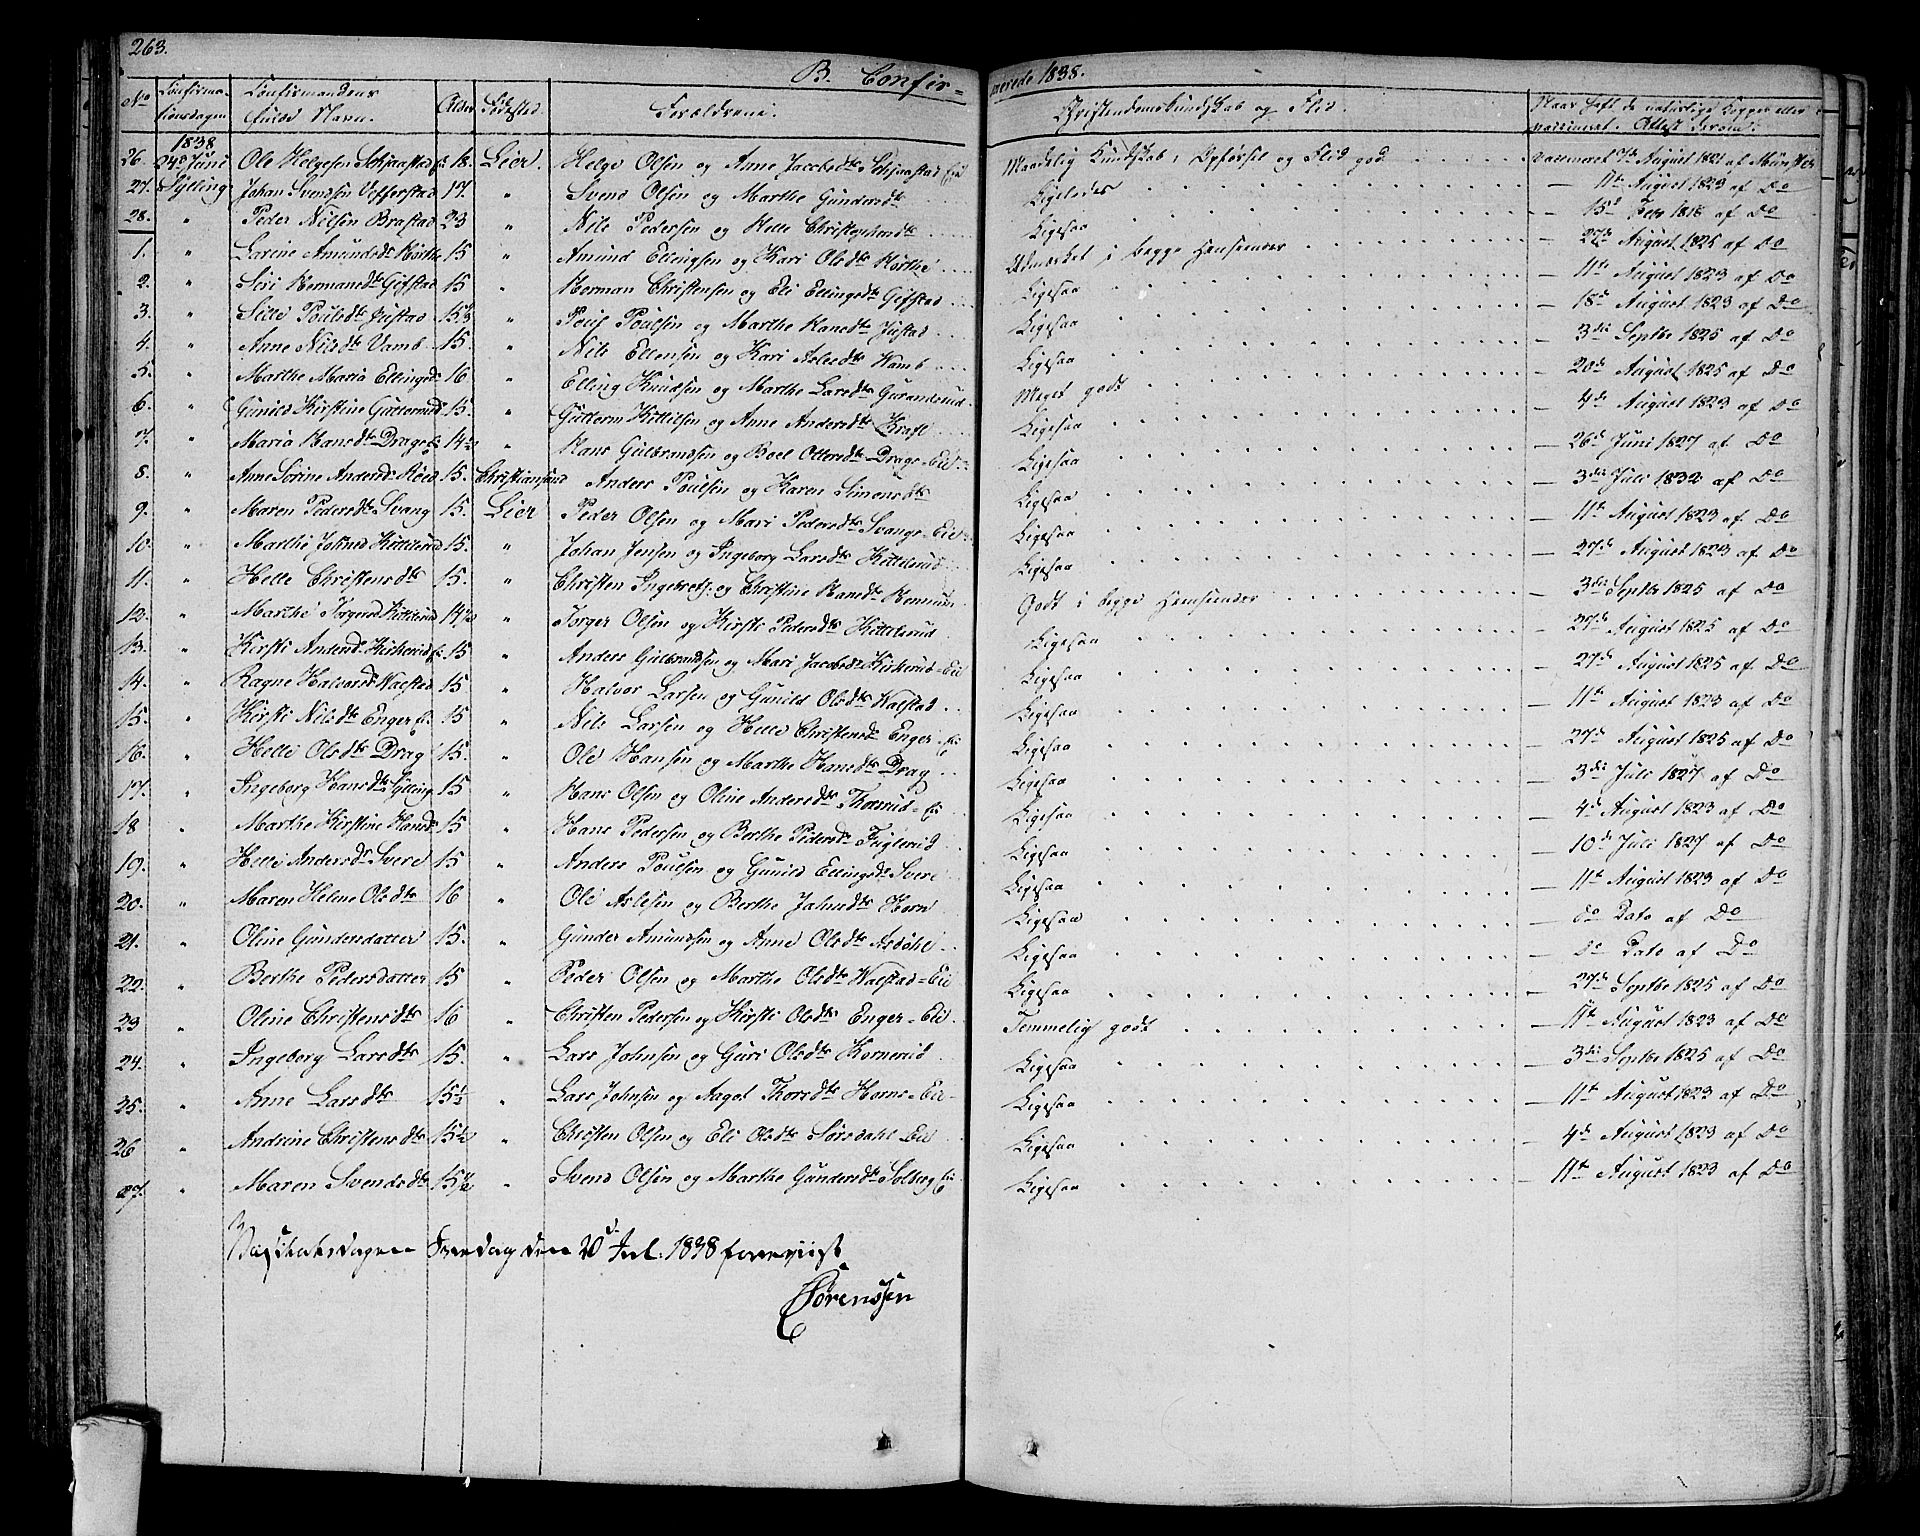 263.
B. Confir-
merede 1838.
No Confirma-tionsdagen Confirmandens fulde Navn. Alder Fødested Forældrene. Christendomskundskab og Flid. Naar havt de naturlige Kopper eller vaccineret. Attest derom.
1838
26. 24de Juni Ole Helgesen Sekjaastad Ei 18. Lier. Helge Olsen og Anne Jacobsdtr Sekjaastad Eie Maadelig Kundskab, Opførsel og Flid god vaccineret 7de August 1821 af Münster
27. Sylling Johan Svendsen Vefferstad 17. " Svend Olsen og Marthe Gundersdtr Ligeledes — 11te August 1823 af Do
28. " Peder Nilsen Brastad 23 " Nils Pedersen og Helle Christophersdtr Ligesaa — 15de Febr 1816 af Do
1. " Larine Amundsdtr Hørthe 15 " Amund Ellingsen og Kari Olsdtr Hørthe Udmærket i begge Henseender — 27de August 1825 af Do
2. " Siri Hermansdtr Gifstad 15 " Herman Christensen og Eli Ellingsdtr Gifstad Ligesaa — 11te August 1823 af Do
3. " Sille Poulsdtr Justad 15½ " Poul Poulsen og Marthe Hansdtr Justad Ligesaa — 18de August 1823 af Do
4. " Anne Nilsdtr Vamb 15 " Nils Ellensen og Kari Aslesdtr Wamb Ligesaa — 3die Septbr 1825 af Do
5. " Marthe Maria Ellingsd 16 " Elling Knudsen og Marthe Larsdtr Guranderud Meget godt — 20de August 1825 af Do
6. " Gunild Kirstine Guttormsd 15. " Guttorm Kittilsen og Anne Andersdtr Kraft Ligesaa — 4de August 1823 af Do
7. " Maria Hansdtr Drags Ei 14½ " Hans Gulbrandsen og Boel Ottersdtr Drags-Eie Ligesaa — 26de Juni 1827 af Do
8. " Anne Sørine Andersd Røed 15. Christiansund Anders Poulsen og Karen Simonsdtr Ligesaa — 3die Juli 1832 af Do
9. " Maren Pedersdtr Svang 15. Lier Peder Olsen og Mari Pedersdtr Svangs-Eie Ligesaa — 11te August 1823 af Do
10. " Marthe Johnsd Kittelsrud 15. " Johan Jensen og Ingeborg Larsdtr Kittelsrud Ligesaa — 27de August 1823 af Do
11. " Helle Christensdtr 15. " Christen Ingebretsen og Christine Hansdtr Rennum Ligesaa — 3die Septbr 1825 af Do
12. " Marthe Torgersd Kittilsrud 14½ " Torger Olsen og Kirsti Pedersdtr Kittelsrud Godt i begge Henseender — 27de August 1825 af Do
13. " Kirsti Andersd Kirkerud Ei 15 " Anders Gulbrandsen og Mari Jacobsdtr Kirkerud-Eie Ligesaa — 27de August 1825 af Do
14. " Ragne Halvorsd Walstad 15 " Halvor Larsen og Gunild Olsdtr Walstad Ligesaa — 11te August 1823 af Do
15. " Kirsti Nilsdtr Enger Ei 15 " Nils Larsen og Helle Christensdtr Enger-Eie Ligesaa — 27de August 1825 af Do
16. " Helle Olsdtr Drag 15. " Ole Hansen og Marthe Hansdtr Drag Ligesaa — 3die Juli 1827 af Do
17. " Ingeborg Hansdtr Sylling 15 " Hans Olsen og Oline Andersdtr Thorsrud-Ei Ligesaa — 4de August 1823 af Do
18 " Marthe Kirstine Hansd 15 " Hans Pedersen og Berthe Pedersdtr Fuglerud Ligesaa — 10de Juli 1827 af Do
19. " Helle Andersdtr Svere 15 " Anders Poulsen og Gunild Ellingsdtr Svere Ligesaa — 11te August 1823 af Do
20. " Maren Helene Olsdtr 16 " Ole Aslesen og Berthe Johnsdtr Horn Ligesaa — do Dato af Do
21. " Oline Gundersdatter 15. " Gunder Amundsen og Anne Olsdtr Asdøhl Ligesaa — do Dato af Do
22. " Berthe Pedersdatter 15 " Peder Olsen og Marthe Olsdtr Walstad-Eie Ligesaa — 27de Septbr 1825 af Do
23 " Oline Christensdtr 16 " Christen Pedersen og Kirsti Olsdtr Enger-Eie Temmelig godt — 11te August 1823 af Do
24. " Ingeborg Larsdtr 15. " Lars Johnsen og Guri Olsdtr Kornerud Ligesaa — 3die Septbr 1825 af Do
25. " Anne Larsdtr 15½ " Lars Johnsen og Aagot Thorsdtr Horns-Eie Ligesaa — 11te August 1823 af Do
26 " Andrine Christensdtr 15½ " Christen Olsen og Eli Olsdtr Sørsdahl Eie Ligesaa — 4de August 1823 af Do
27. " Maren Svendsdtr 15½ " Svend Olsen og Marthe Gundersdtr Solberg Eie Ligesaa — 11te August 1823 af Do
Fredag den 20de Jul: 1838 foreviist
Sørenssen